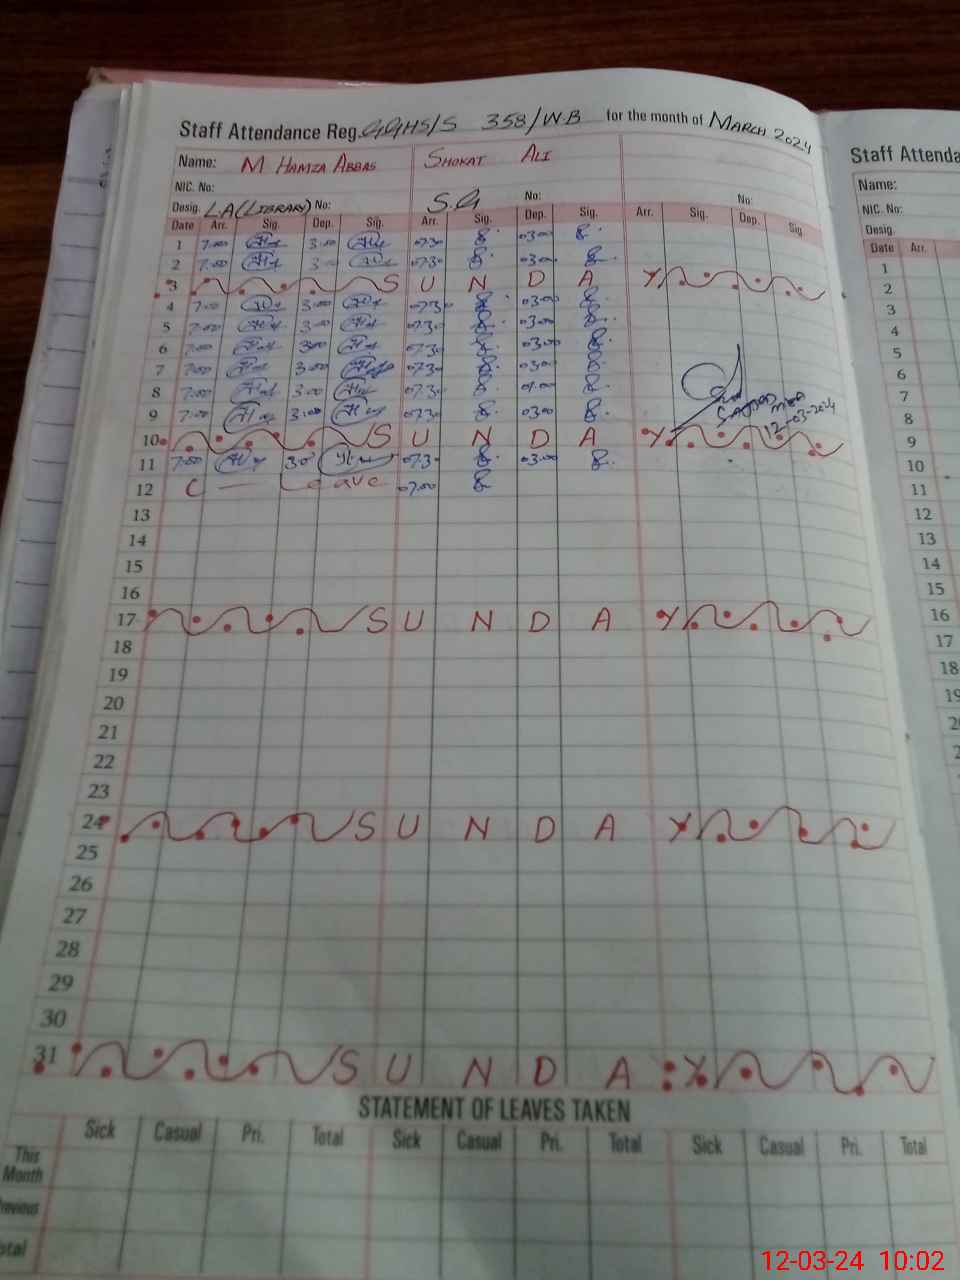 Staff Attendance Reg. GGHS/S 358/WB for the month of MARCH 2024
Name: M HAMZA ABBAS SHOKAT ALI
NIC. No:
Desig. LA(LIBRARY) No: S.G No: No:
Date Arr. Sig. Dep. Sig. Arr. Sig. Dep. Sig. Arr. Sig. Dep. Sig.
1 7:00 3:00 0730 0300
2 7:00 3:00 0730 0300
3 SUNDAY
4 7:00 3:00 0730 0300
5 7:00 3:00 0730 0300
6 7:00 3:00 0730 0300
7 7:00 3:00 0730 0300
8 7:00 3:00 0730 01.00
9 7:00 3:00 0730 0300
SAJJAD MEA
12-03-2024
10 SUNDAY
11 7:00 300 0730 0300
12 C Leave 07.00
13
14
15
16
17 SUNDAY
18
19
20
21
22
23
24 SUNDAY
25
26
27
28
29
30
31 SUNDAY
STATEMENT OF LEAVES TAKEN
Sick Casual Pri. Total Sick Casual Pri. Total Sick Casual Pri. Total
This Month
Previous
Total
Staff Attenda
Name:
NIC. No:
Desig.
Date Arr.
1
2
3
4
5
6
7
8
9
10
11
12
13
14
15
16
17
18
12-03-24 10:02